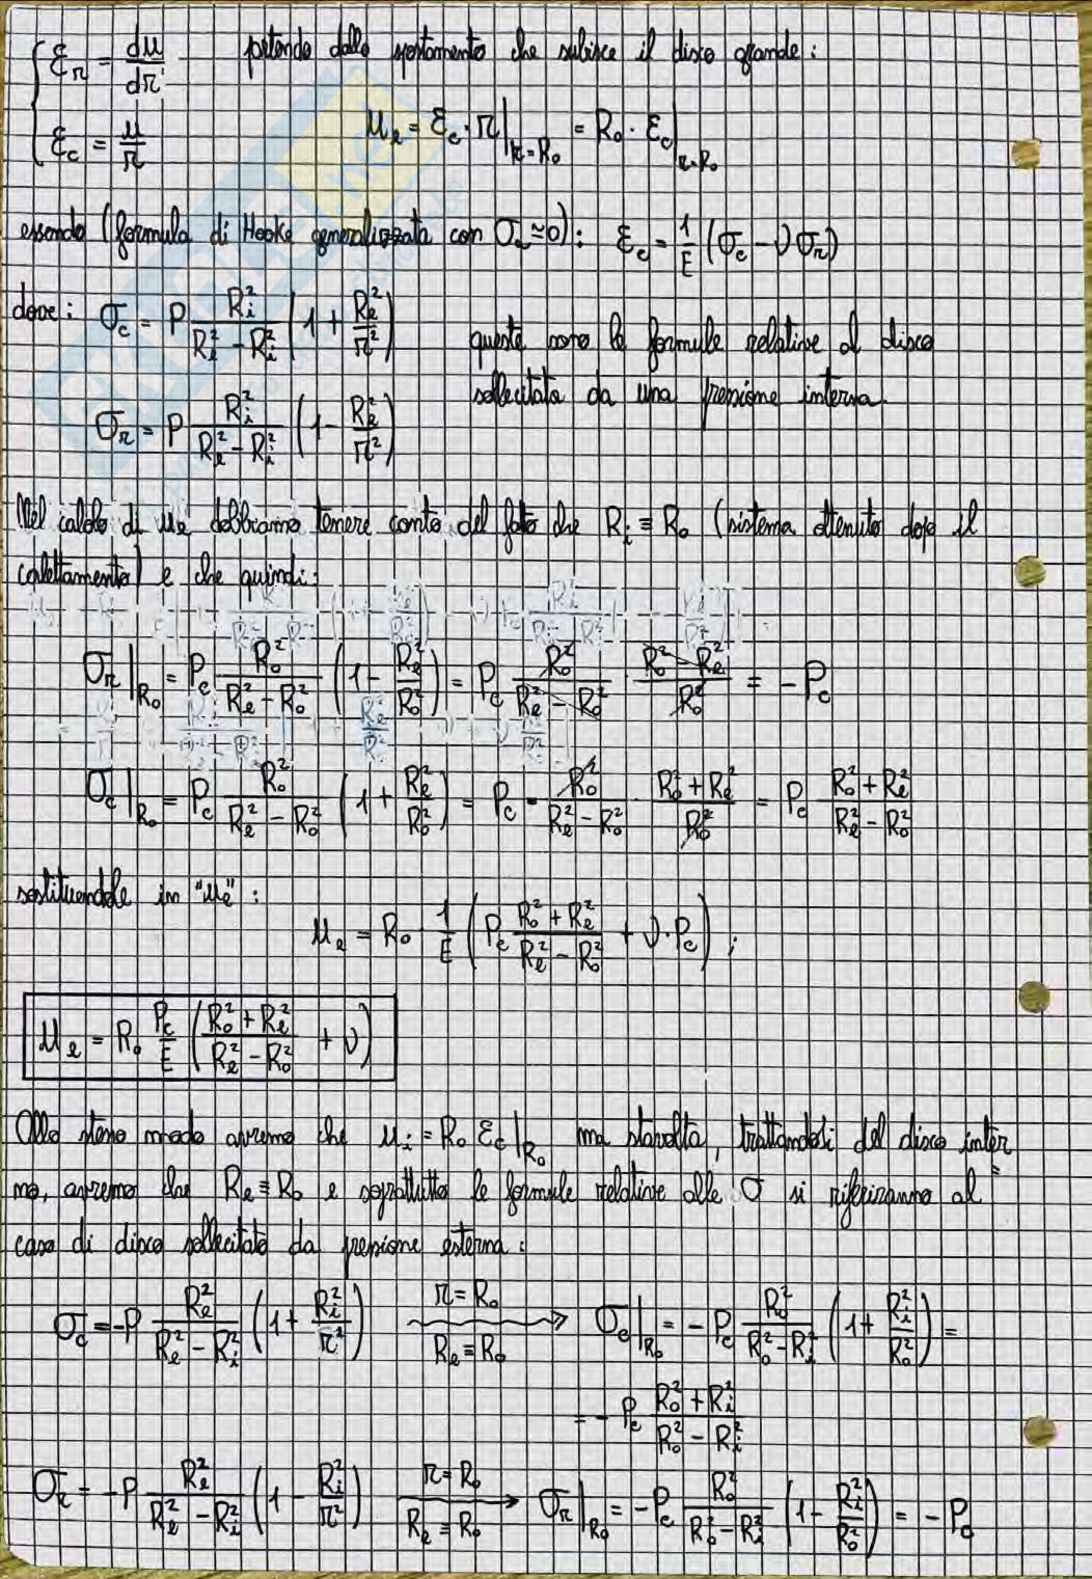 ε_r = du/dr partendo dallo spostamento che subisce il disco grande:
ε_c = u/r u_e = ε_c · r|_{r=R_o} = R_o · ε_c|_{r=R_o}
essendo (formula di Hooke generalizzata con σ_a ≃ 0): ε_c = 1/E (σ_c - ν σ_r)
dove: σ_c = P R_i²/(R_e² - R_i²) (1 + R_e²/r²) queste sono le formule relative al disco
sollecitato da una pressione interna.
σ_r = P R_i²/(R_e² - R_i²) (1 - R_e²/r²)
Nel calcolo di u_e dobbiamo tenere conto del fatto che R_i ≡ R_o (sistema ottenuto dopo il
calettamento) e che quindi:
σ_r|_{R_o} = P_c R_o²/(R_e² - R_o²) (1 - R_e²/R_o²) = P_c R_o²/(R_e² - R_o²) · (R_o² - R_e²)/R_o² = - P_c
σ_c|_{R_o} = P_c R_o²/(R_e² - R_o²) (1 + R_e²/R_o²) = P_c · R_o²/(R_e² - R_o²) · (R_o² + R_e²)/R_o² = P_c (R_o² + R_e²)/(R_e² - R_o²)
sostituendole in "u_e":
u_e = R_o · 1/E (P_c (R_o² + R_e²)/(R_e² - R_o²) + ν · P_c) ;
u_e = R_o P_c/E ((R_o² + R_e²)/(R_e² - R_o²) + ν)
Allo stesso modo avremo che u_i = R_o ε_c|_{R_o} ma stavolta, trattandosi del disco inter
no, avremo che R_e ≡ R_o e soprattutto le formule relative alle σ si riferiranno al
caso di disco sollecitato da pressione esterna:
σ_c = -P R_e²/(R_e² - R_i²) (1 + R_i²/r²) r = R_o R_e ≡ R_o → σ_c|_{R_o} = - P_c R_o²/(R_o² - R_i²) (1 + R_i²/R_o²) =
= - P_c (R_o² + R_i²)/(R_o² - R_i²)
σ_r = -P R_e²/(R_e² - R_i²) (1 - R_i²/r²) r = R_o R_e ≡ R_o → σ_r|_{R_o} = -P_c R_o²/(R_o² - R_i²) (1 - R_i²/R_o²) = - P_c